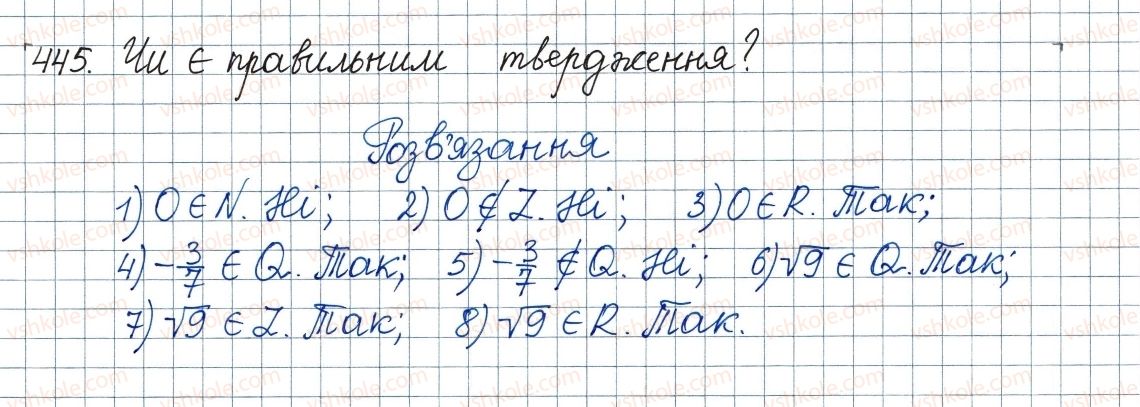 445. Чи є правильним твердження?
Розв'язання
1) 0 ∈ N. Ні; 2) 0 ∉ Z. Ні; 3) 0 ∈ R. Так;
4) -3/7 ∈ Q. Так; 5) -3/7 ∉ Q. Ні; 6) √9 ∈ Q. Так;
7) √9 ∈ Z. Так; 8) √9 ∈ R. Так.